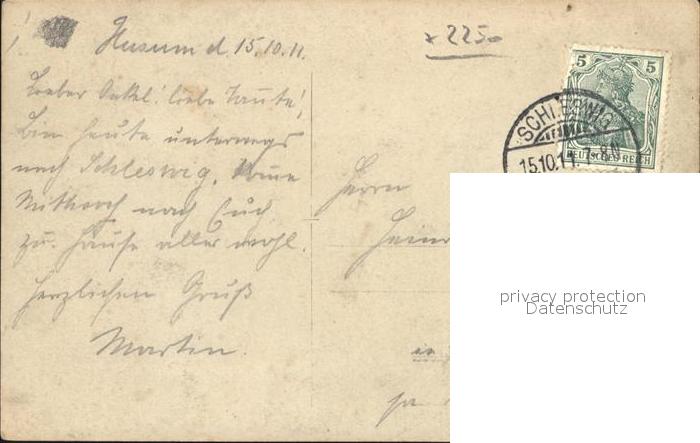 Husum d. 15.10.11.
x 2250
Lieber Onkel! liebe Tante!
Bin heute unterwegs
nach Schleswig. Komme
Mittwoch nach Euch
zu Hause alles wohl.
Herzlichen Gruß
Martin.
5 5
DEUTSCHES REICH
SCHLESWIG
15.10.11.7-8N
Herrn
Heinr
in
privacy protection
Datenschutz